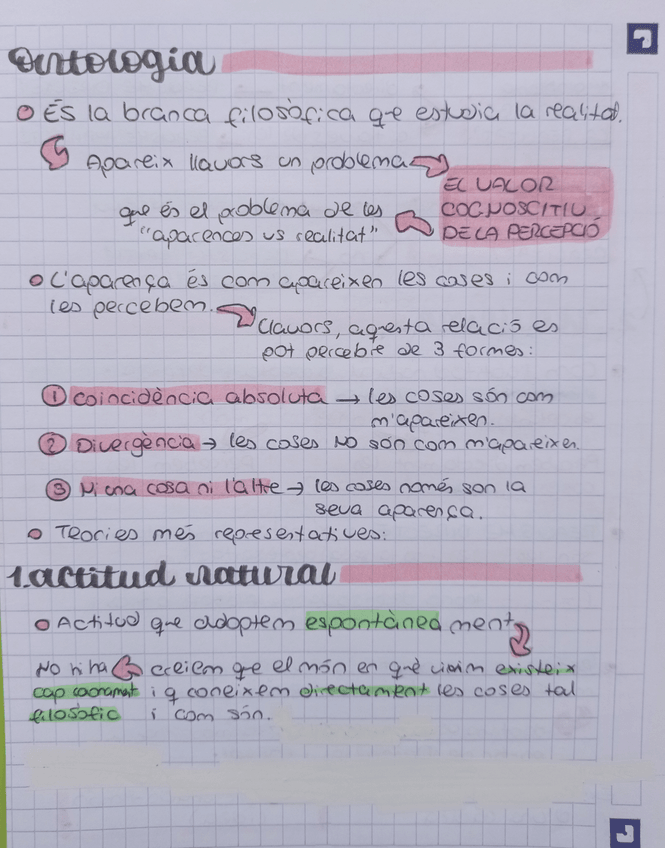 Ontologia
És la branca filosòfica que estudia la realitat.
Apareix llavors un problema
EL VALOR
COGNOSCITIU
DE LA PERCEPCIÓ
que és el problema de les
"aparences vs realitat"
L'aparença és com apareixen les coses i com
les percebem.
Llavors, aquesta relació es
pot percebre de 3 formes:
1 Coincidència absoluta → les coses són com
m'apareixen.
2 Divergència → les coses NO són com m'apareixen.
3 Ni una cosa ni l'altre → les coses només son la
seva aparença.
Teories més representatives:
1. actitud natural
Actitud que adoptem espontàneament
creiem que el món en què vivim existeix
i q coneixem directament les coses tal
i com són.
No hi ha
cap
filosòfic